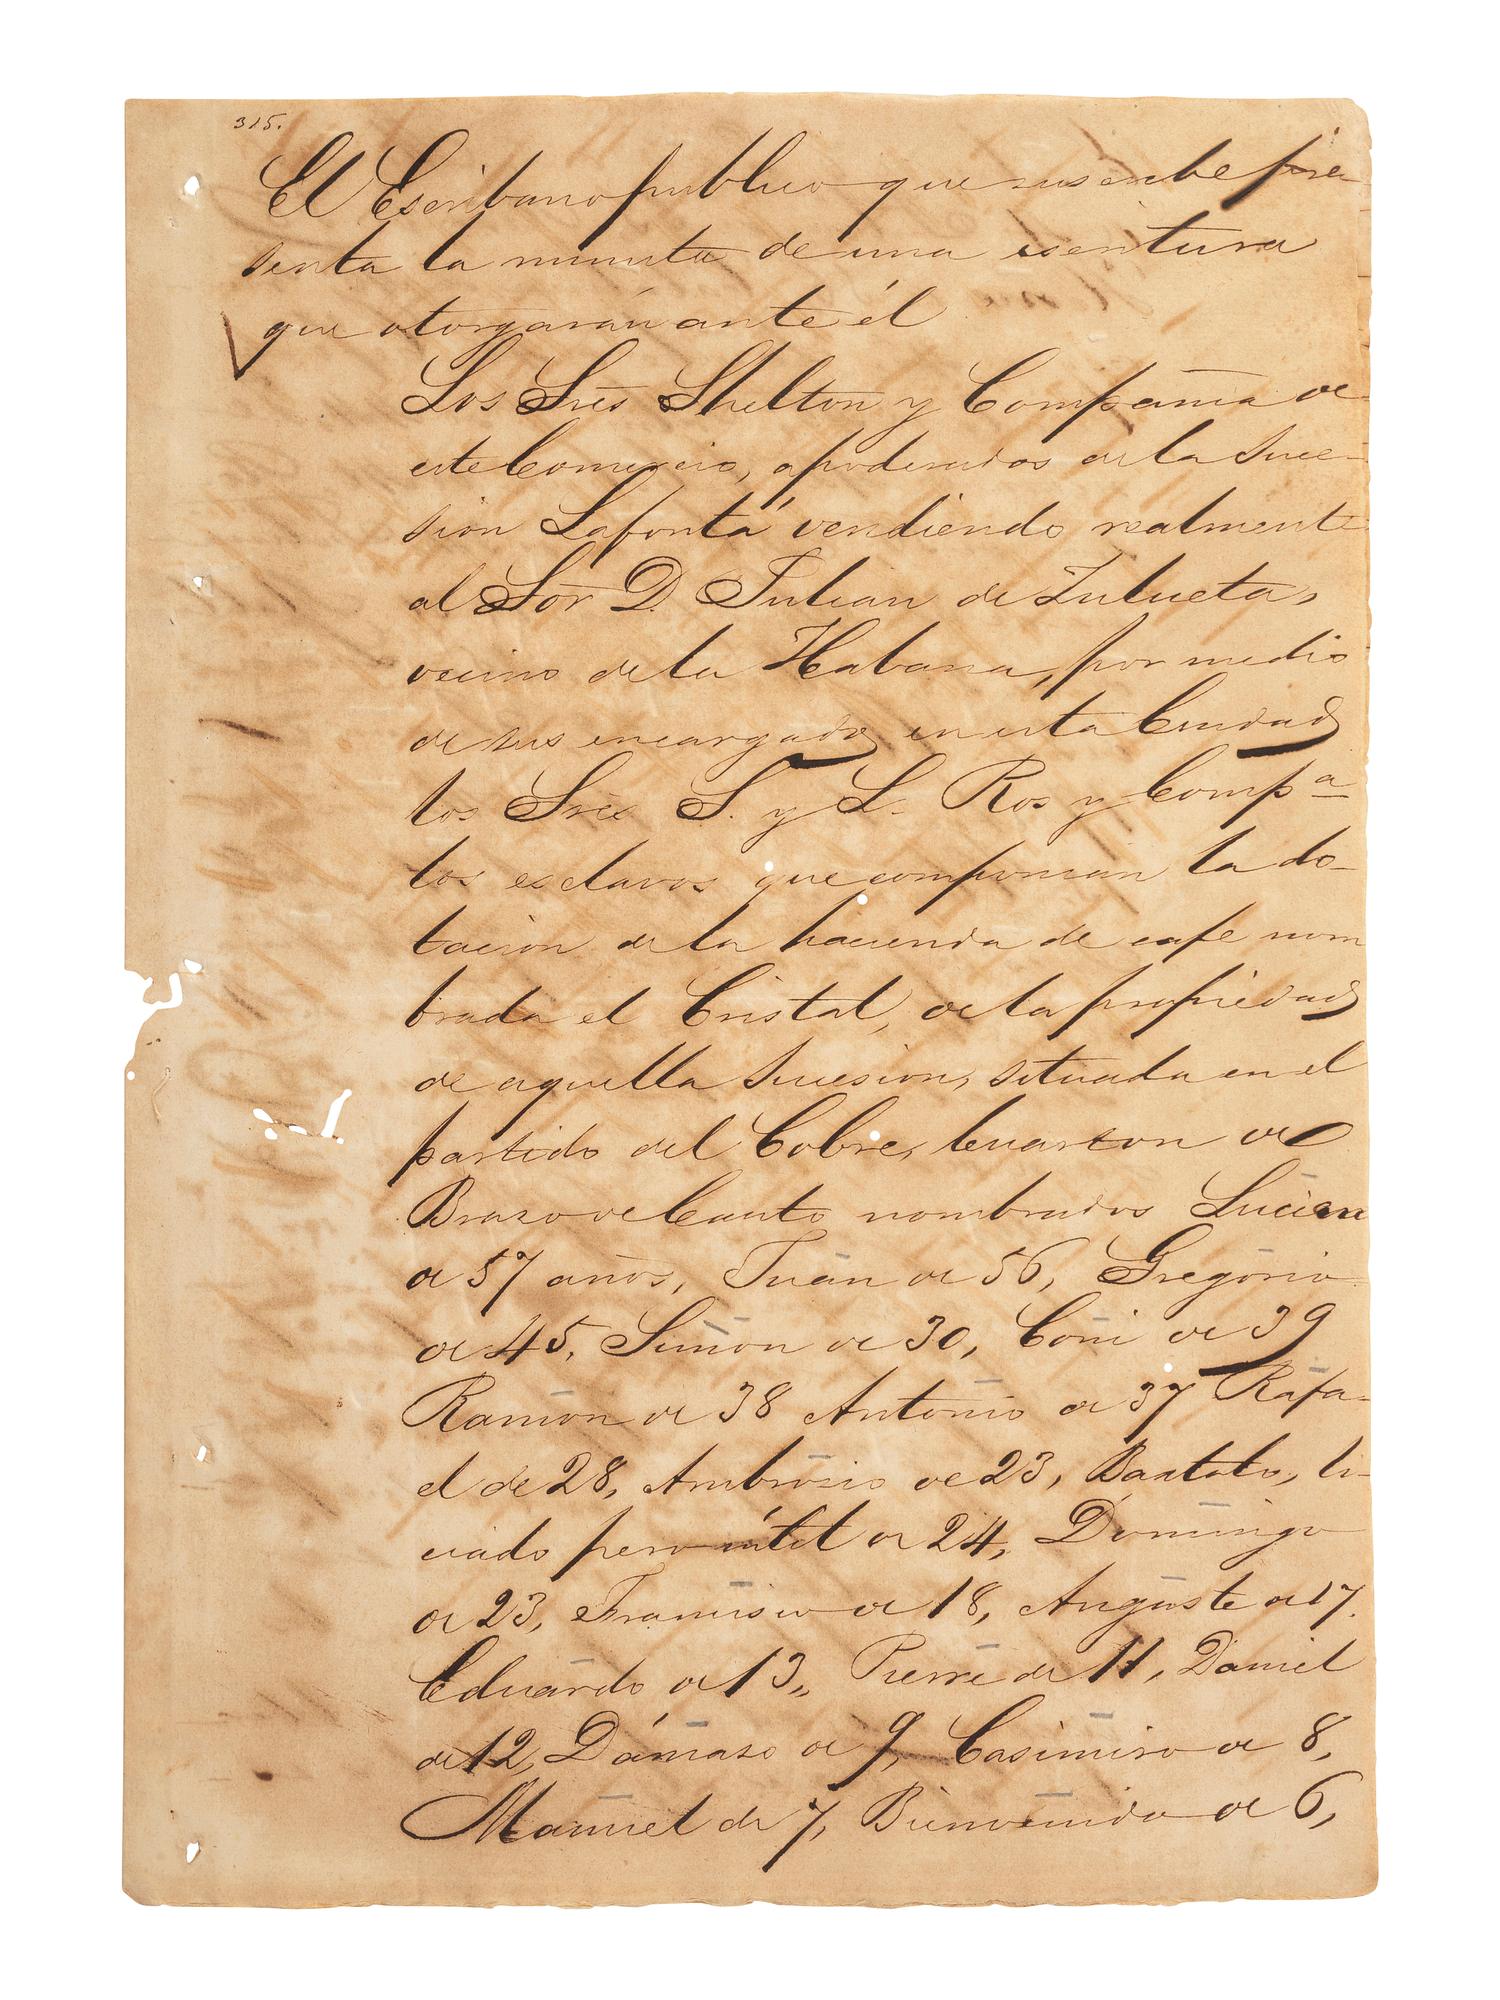 315.
El Escribano publico que suscribe pre-
senta la minuta de una escritura
que otorgarán ante él
Los Sres Shelton y Compañia de
este Comercio, apoderados de la Suce-
sion Lafontá vendiendo realmente
al Sor D. Julian de Zulueta,
vecino de la Habana, por medio
de sus encargados en esta Ciudad
los Sres S. y L. Ros y Compa
los esclavos que componian la do-
tacion de la hacienda de cafe nom
brada el Cristal, de la propiedad
de aquella Sucesion, situada en el
partido del Cobre, Cuarton de
Brazo de Cauto nombrados Lucien
de 57 años, Juan de 56, Gregorio
de 45, Simon de 30, Coñi de 39
Ramon de 38 Antonio de 37 Rafa-
el de 28, Ambrosio de 23, Bartolo, li-
ciado pero útil de 24, Domingo
de 23, Francisco de 18, Auguste de 17.
Eduardo de 13,, Pierre de 11, Daniel
de 12, Dámaso de 9, Casimiro de 8,
Manuel de 7, Bienvenido de 6,